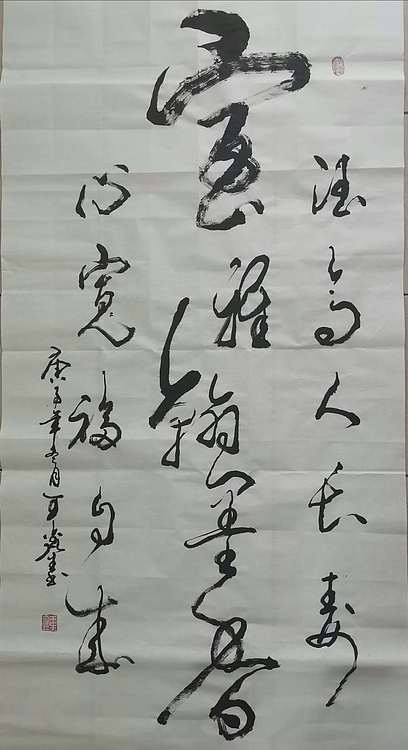 德高人长寿
室雅翰墨香
心寬福自来
庚子年冬月